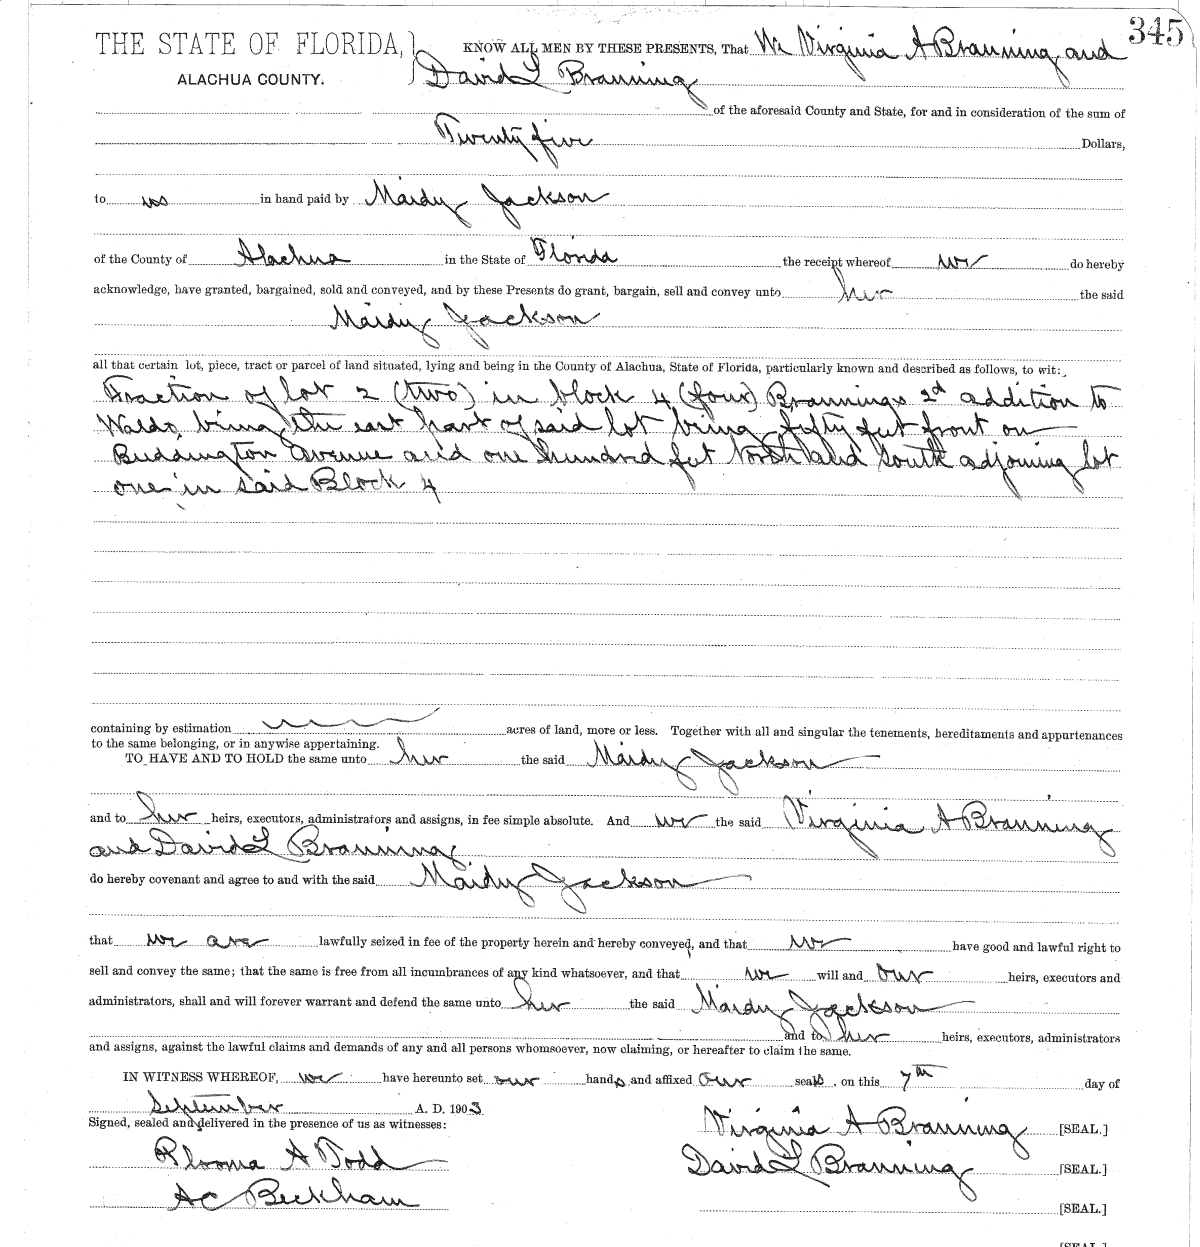 345
THE STATE OF FLORIDA, KNOW ALL MEN BY THESE PRESENTS, That We Virginia A Branning and
ALACHUA COUNTY. David L Branning
of the aforesaid County and State, for and in consideration of the sum of
Twenty five Dollars,
to us in hand paid by Maidy Jackson
of the County of Alachua in the State of Florida the receipt whereof we do hereby
acknowledge, have granted, bargained, sold and conveyed, and by these Presents do grant, bargain, sell and convey unto her the said
Maidy Jackson
all that certain lot, piece, tract or parcel of land situated, lying and being in the County of Alachua, State of Florida, particularly known and described as follows, to wit:
Fraction of lot 2 (two) in block 4 (four) Brannings 2d addition to
Waldo, being the east part of said lot being fifty feet front on
Buddington Avenue and one hundred feet North and South adjoining lot
one in said Block 4
containing by estimation acres of land, more or less. Together with all and singular the tenements, hereditaments and appurtenances
to the same belonging, or in anywise appertaining.
TO HAVE AND TO HOLD the same unto her the said Maidy Jackson
and to her heirs, executors, administrators and assigns, in fee simple absolute. And we the said Virginia A Branning
and David L Branning
do hereby covenant and agree to and with the said Maidy Jackson
that we are lawfully seized in fee of the property herein and hereby conveyed, and that we have good and lawful right to
sell and convey the same; that the same is free from all incumbrances of any kind whatsoever, and that we will and our heirs, executors and
administrators, shall and will forever warrant and defend the same unto her the said Maidy Jackson
and to her heirs, executors, administrators
and assigns, against the lawful claims and demands of any and all persons whomsoever, now claiming, or hereafter to claim the same.
IN WITNESS WHEREOF, we have hereunto set our hands and affixed our seals, on this 7th day of
September A. D. 1903
Signed, sealed and delivered in the presence of us as witnesses:
Virginia A Branning [SEAL.]
A Todd David L Branning [SEAL.]
A C Beckham [SEAL.]